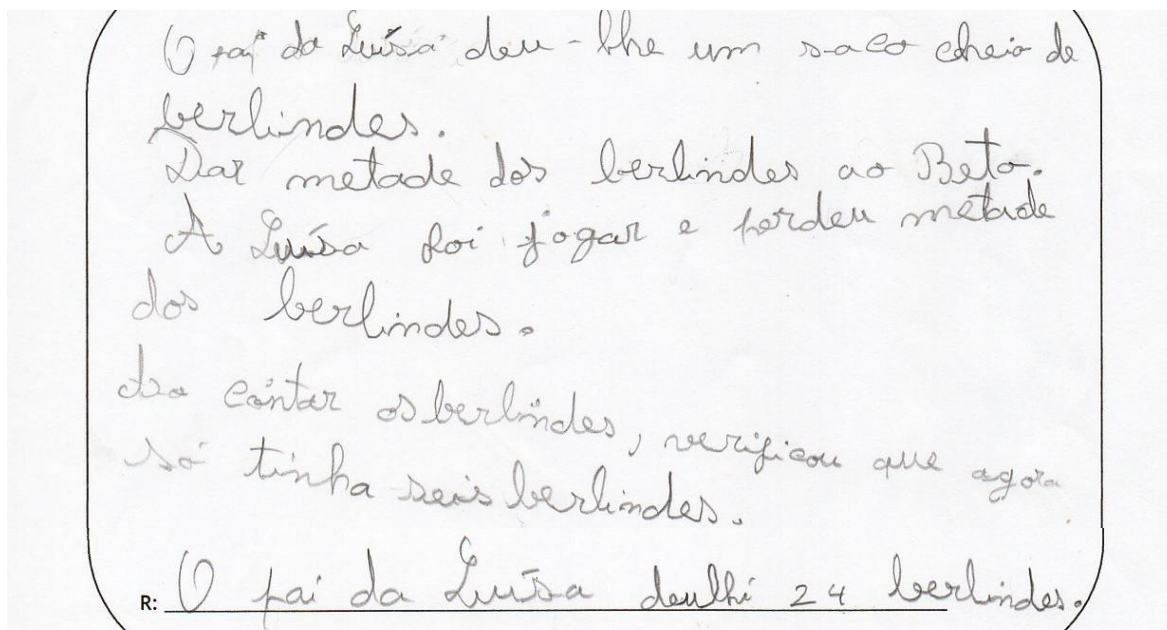 O pai da Luísa deu-lhe um saco cheio de
berlindes.
Dar metade dos berlindes ao Beto.
A Luísa foi jogar e perdeu metade
dos berlindes.
Ao contar os berlindes, verificou que agora
só tinha seis berlindes.
R: O pai da Luísa deulhi 24 berlindes.